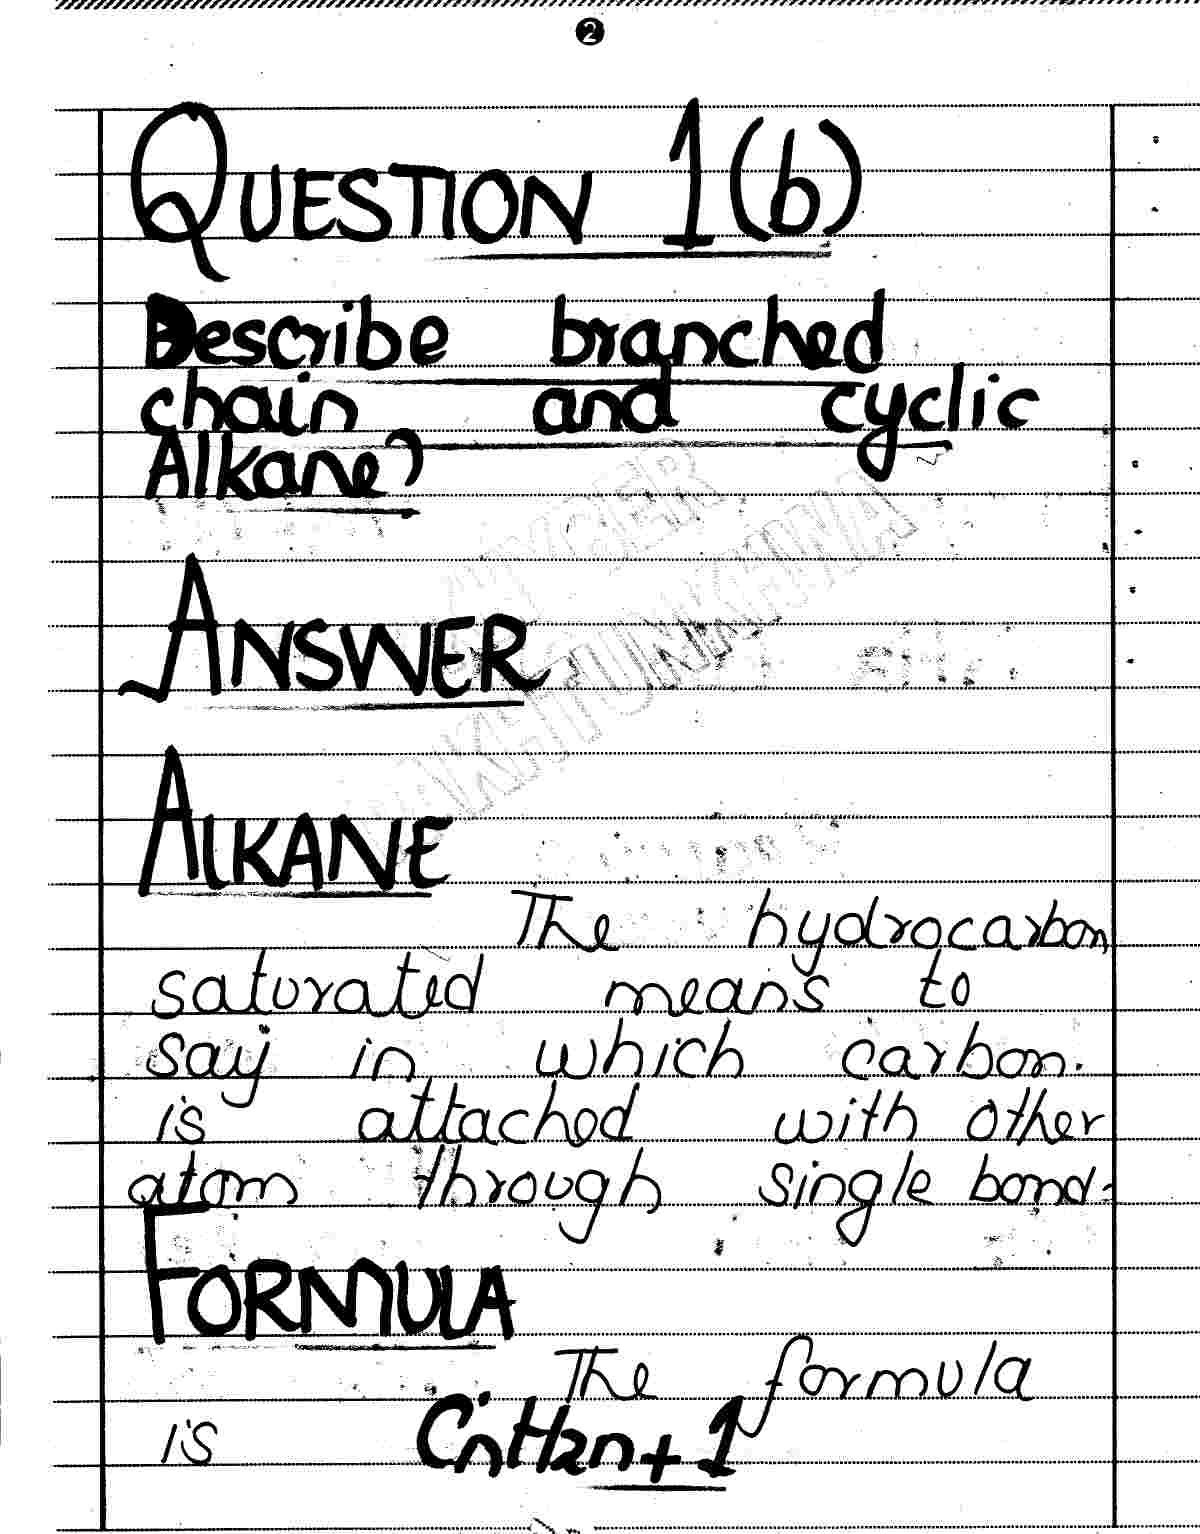 2
QUESTION 1(b)
Describe branched
chain and cyclic
Alkane?
ANSWER
ALKANE
The hydrocarbon
saturated means to
say in which carbon.
is attached with other
atom through single bond.
FORMULA
The formula
is CnH2n+1
KHYBER
PAKHTUNKHWA